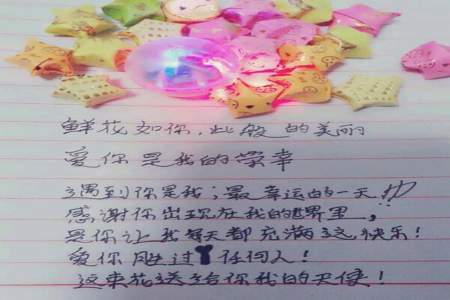 鲜花如你，此般的美丽
爱你是我的荣幸
遇到你是我；最幸运的一天
感谢你出现在我的世界里，
是你让我每天都充满这快乐！
爱你胜过任何人！
这束花送给你我的天使！